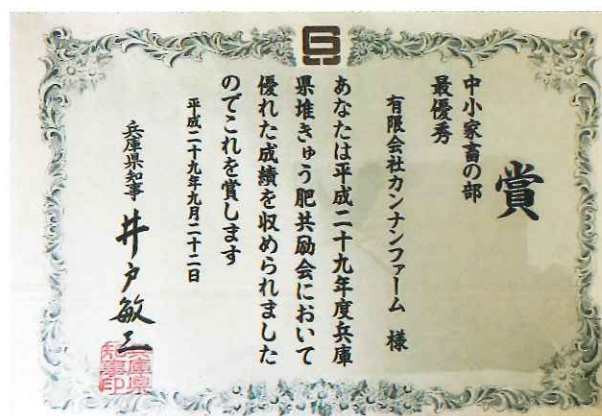 賞
中小家畜の部
最優秀
有限会社カンナンファーム 様
あなたは平成二十九年度兵庫
県堆きゅう肥共励会において
優れた成績を収められました
のでこれを賞します
平成二十九年九月二十二日
兵庫県知事 井戸敏三
兵庫県
知事印